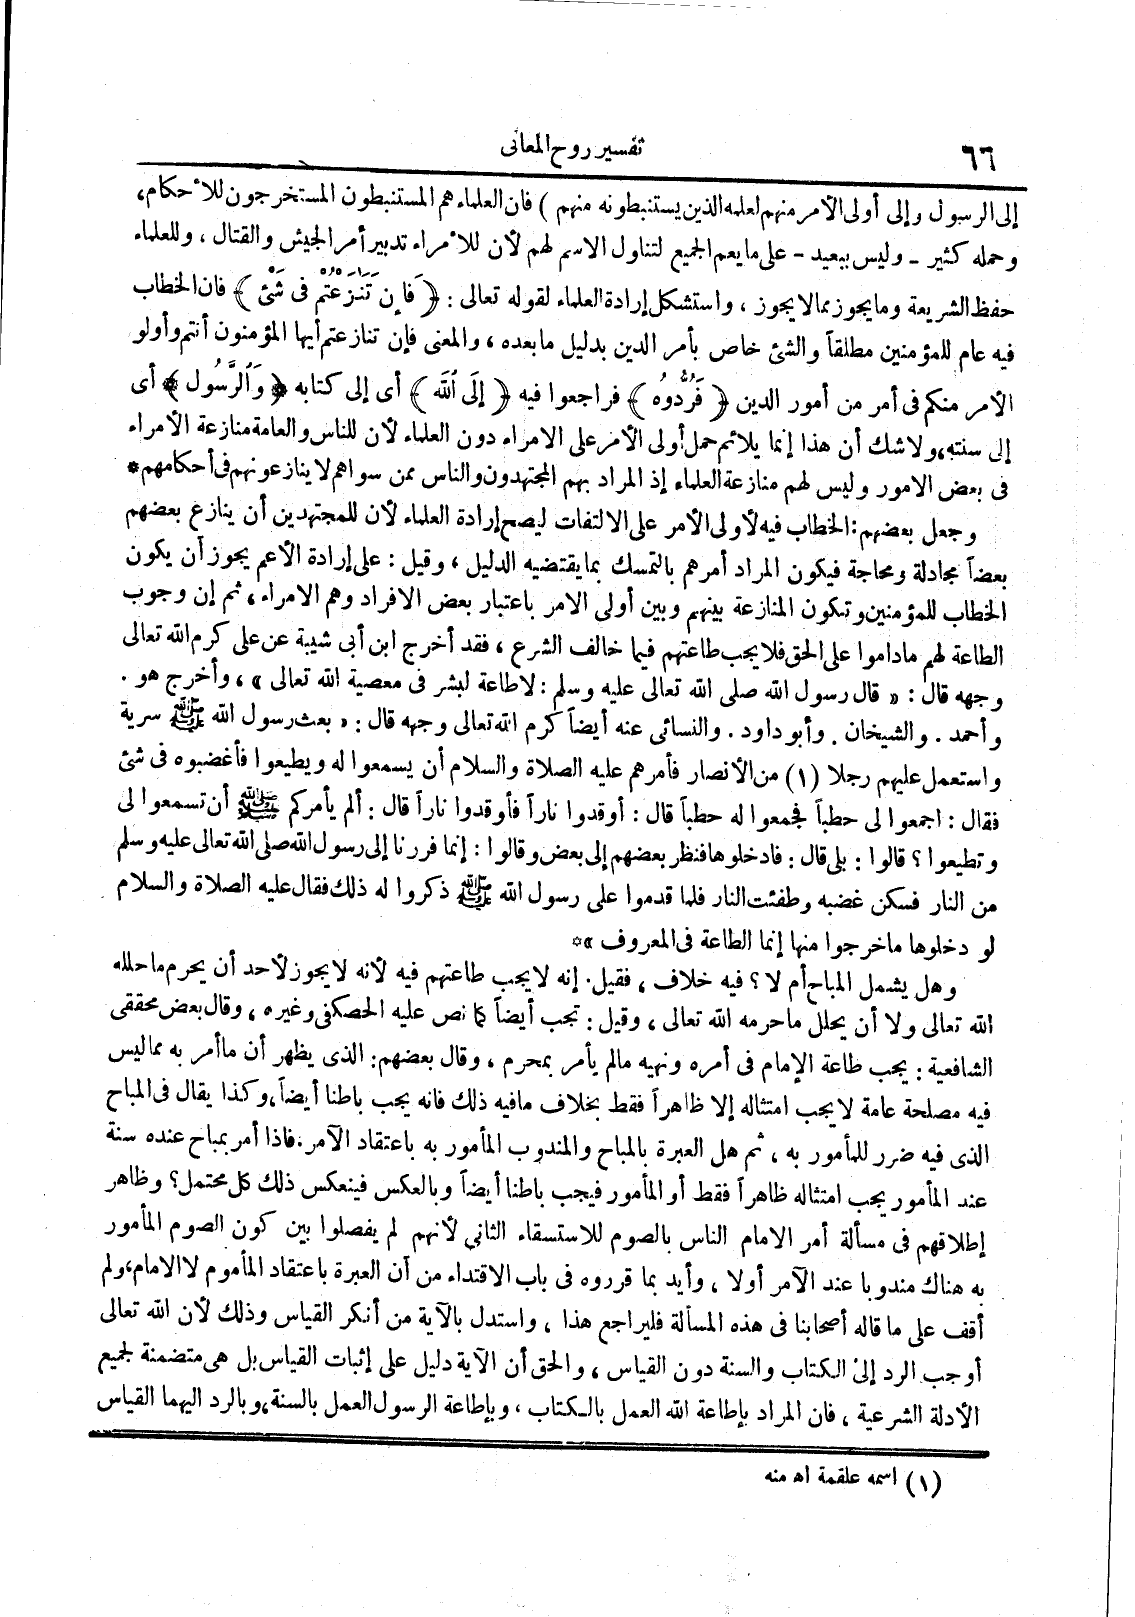 ٦٦
تفسير روح المعانى
إلى الرسول وإلى أولى الأمر منهم لعلمه الذين يستنبطونه منهم ) فان العلماء هم المستنبطون المستخرجون للأحكام،
وحمله كثير ـ وليس ببعيد ـ على ما يعم الجميع لتناول الاسم لهم لأن للأمراء تدبير أمر الجيش والقتال ، وللعلماء
حفظ الشريعة وما يجوز مما لا يجوز ، واستشكل إرادة العلماء لقوله تعالى : ﴿ فَإِن تَنَازَعْتُمْ فى شَىْءٍ ﴾ فان الخطاب
فيه عام للمؤمنين مطلقاً والشئ خاص بأمر الدين بدليل ما بعده ، والمعنى فإن تنازعتم أيها المؤمنون أنتم وأولو
الأمر منكم فى أمر من أمور الدين ﴿ فَرُدُّوهُ ﴾ فراجعوا فيه ﴿ إِلَى ٱللَّه ﴾ أى إلى كتابه ﴿ وَٱلرَّسُول ﴾ أى
إلى سنته، ولاشك أن هذا إنما يلائم حمل أولى الأمر على الامراء دون العلماء لأن للناس والعامة منازعة الأمراء
فى بعض الامور وليس لهم منازعة العلماء إذ المراد بهم المجتهدون والناس ممن سواهم لا ينازعونهم فى أحكامهم *
وجعل بعضهم : الخطاب فيه لأولى الأمر على الالتفات ليصح إرادة العلماء لأن للمجتهدين أن ينازع بعضهم
بعضاً مجادلة ومحاجة فيكون المراد أمرهم بالتمسك بما يقتضيه الدليل ، وقيل : على إرادة الأعم يجوز أن يكون
الخطاب للمؤمنين وتكون المنازعة بينهم وبين أولى الامر باعتبار بعض الافراد وهم الامراء ، ثم إن وجوب
الطاعة لهم ماداموا على الحق فلا يجب طاعتهم فيما خالف الشرع ، فقد أخرج ابن أبى شيبة عن على كرم الله تعالى
وجهه قال : « قال رسول الله صلى الله تعالى عليه وسلم : لاطاعة لبشر فى معصية الله تعالى » ، وأخرج هو .
وأحمد . والشيخان . وأبو داود . والنسائى عنه أيضاً كرم الله تعالى وجهه قال : « بعث رسول الله ﷺ سرية
واستعمل عليهم رجلا (١) من الأنصار فأمرهم عليه الصلاة والسلام أن يسمعوا له ويطيعوا فأغضبوه فى شئ
فقال : اجمعوا لى حطباً فجمعوا له حطباً قال : أوقدوا ناراً فأوقدوا ناراً قال : ألم يأمركم ﷺ أن تسمعوا لى
وتطيعوا ؟ قالوا : بلى قال : فادخلوها فنظر بعضهم إلى بعض وقالوا : إنما فررنا إلى رسول الله صلى الله تعالى عليه وسلم
من النار فسكن غضبه وطفئت النار فلما قدموا على رسول الله ﷺ ذكروا له ذلك فقال عليه الصلاة والسلام
لو دخلوها ما خرجوا منها إنما الطاعة فى المعروف »*
وهل يشمل المباح أم لا ؟ فيه خلاف ، فقيل . إنه لا يجب طاعتهم فيه لأنه لا يجوز لأحد أن يحرم ما حلله
الله تعالى ولا أن يحلل ما حرمه الله تعالى ، وقيل : تجب أيضاً كما نص عليه الحصكفى وغيره ، وقال بعض محققى
الشافعية : يجب طاعة الإمام فى أمره ونهيه مالم يأمر بمحرم ، وقال بعضهم : الذى يظهر أن ما أمر به مما ليس
فيه مصلحة عامة لا يجب امتثاله إلا ظاهراً فقط بخلاف مافيه ذلك فانه يجب باطنا أيضاً، وكذا يقال فى المباح
الذى فيه ضرر للمأمور به ، ثم هل العبرة بالمباح والمندوب المأمور به باعتقاد الآمر ، فاذا أمر بمباح عنده سنة
عند المأمور يجب امتثاله ظاهراً فقط أو المأمور فيجب باطنا أيضاً وبالعكس فينعكس ذلك كل محتمل ؟ وظاهر
إطلاقهم فى مسألة أمر الامام الناس بالصوم للاستسقاء الثانى لأنهم لم يفصلوا بين كون الصوم المأمور
به هناك مندوبا عند الآمر أولا ، وأيد بما قرروه فى باب الاقتداء من أن العبرة باعتقاد المأموم لا الامام، ولم
أقف على ما قاله أصحابنا فى هذه المسألة فليراجع هذا ، واستدل بالآية من أنكر القياس وذلك لأن الله تعالى
أوجب الرد إلى الكتاب والسنة دون القياس ، والحق أن الآية دليل على إثبات القياس بل هى متضمنة لجميع
الأدلة الشرعية ، فان المراد بإطاعة الله العمل بالكتاب ، وبإطاعة الرسول العمل بالسنة، وبالرد اليهما القياس
(١) اسمه علقمة اه منه